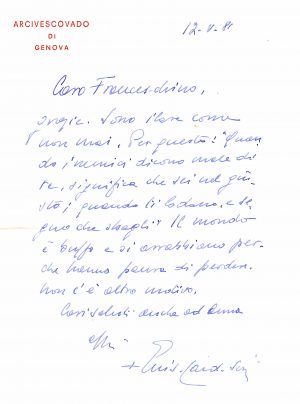 ARCIVESCOVADO
DI
GENOVA
12-V-81
Caro Franceschino,
grazie. Sono ilare come
non mai. Per questo: "Quan
do i nemici dicono male di
te, significa che sei nel giu
sto; quando ti lodano, è se
gno che sbagli". Il mondo
è buffo e si arrabbiano per
chè hanno paura di perdere.
Non c'è altro motivo.
Cari saluti anche ad Anna
aff.
+ Giuseppe Card. Siri